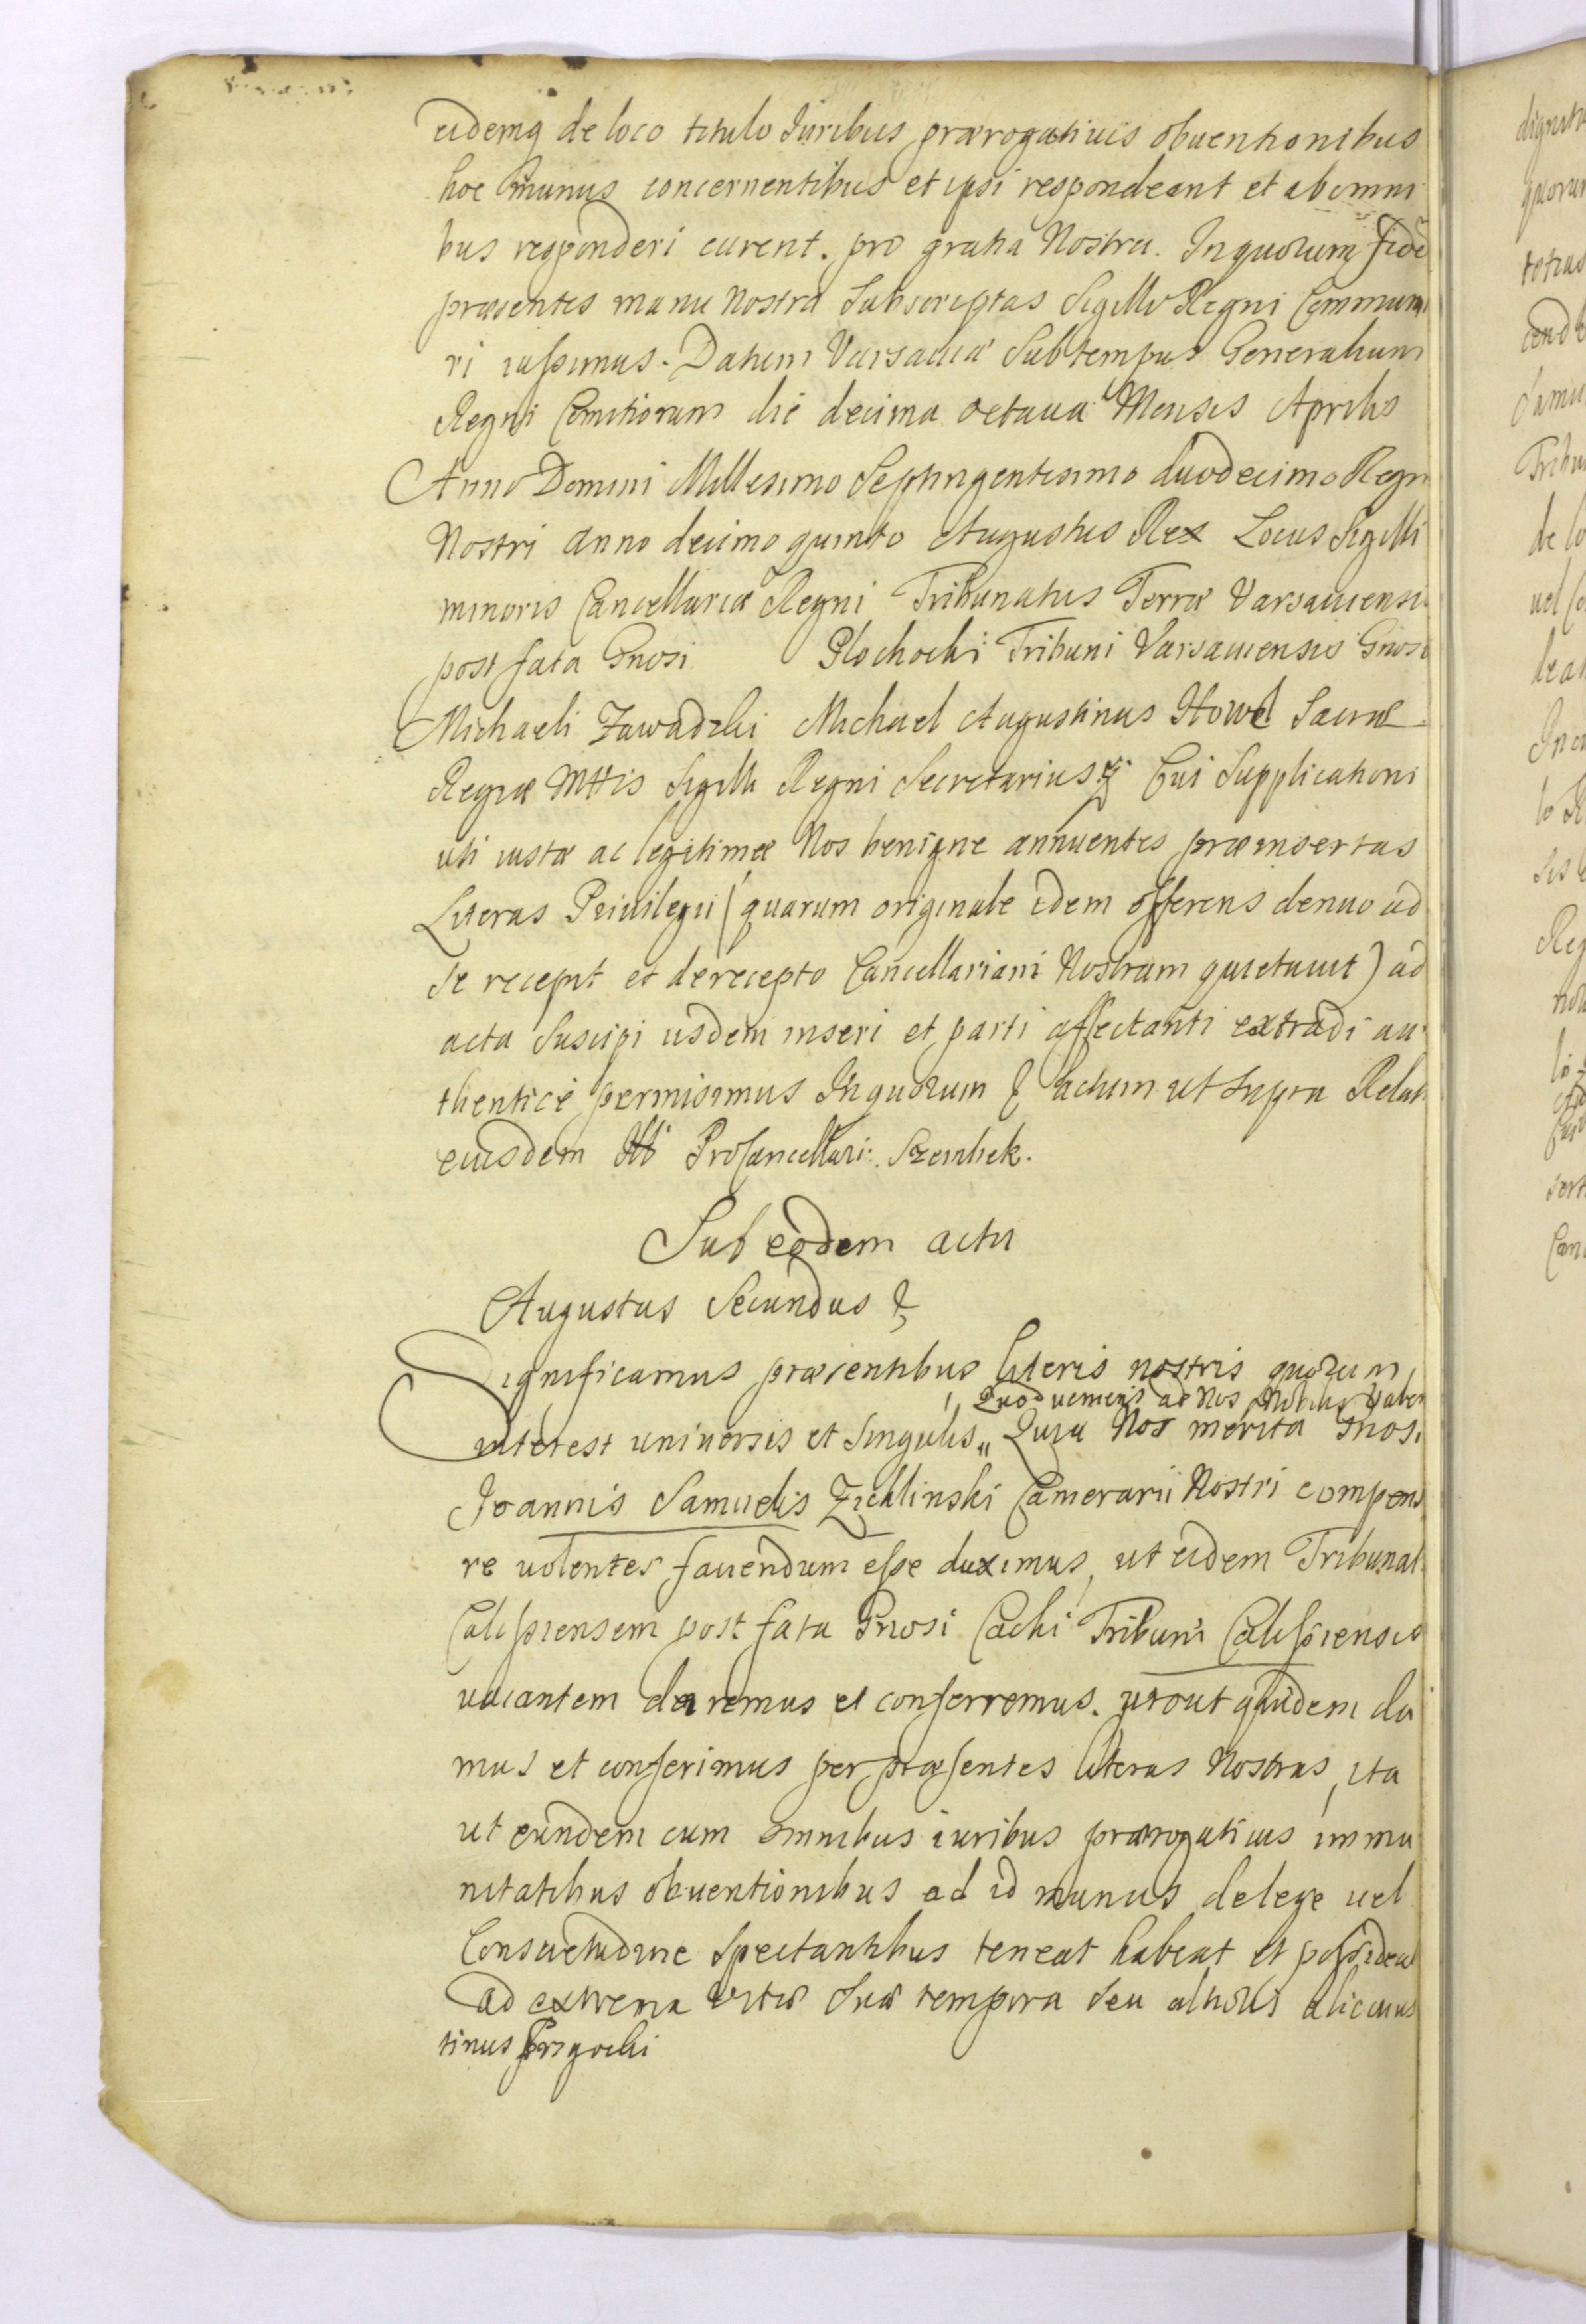 eidemq de loco titulo Iuribus prærogativis obventionibus
hoc munus concernentibus et ipsi respondeant et ab omni
bus responderi curent. pro gratia Nostra. In quorum fidẽ
præsentes manu Nostra Subscriptas Sigillo Regni Communi
ri iussimus. Datum Varsaviæ Sub tempus Generalium
Regni Comitiorum die decima octava Mensis Aprilis
Anno Domini Millesimo Septingentesimo duodecimo Regni
Nostri anno decimo quinto Augustus Rex Locus Sigilli
minoris Cancellariæ Regni Tribunatus Terræ Varsaviensis
post fata Gnosi Plochocki Tribuni Varsaviensis Gnoso
Michaeli Zawadzki Michael Augustinus Howel Sacræ
Regiæ Mttis Sigilli Regni Secretarius Cui Supplicationi
uti iustæ ac legitimæ Nos benigne annuentes præinsertas
Literas Privilegii (quarum originale idem offerens denuo ad
se recepit et de recepto Cancellariam Nostram quietavit) ad
acta Suscipi iisdem inseri et parti affectanti extradi au
thentice permisimus In quorum & actum ut supra Relat
eiusdem Procancellari: Szembek.
Sub eodem actu
Augustus Secundus &
Significamus præsentibus literis nostris quorum
Quod veniens ad Nos Nobilis Valen
interest universis et Singulis,, Quia Nos merita Gnosi
Joannis Samuelis Zichlinski Camerarii Nostri compensa
re volentes favendum esse duximus, ut eidem Tribunat
Calissiensem post fata Gnosi Cachi Tribuni Calissiensis
vacantem daremus et conferremus. utout quidem da
mus et conferimus per præsentes literas Nostras, ita
ut eundem cum omnibus iuribus prærogativis immu
nitatibus obventionibus ad id munus de lege vel
Consuetudine Spectantibus teneat habeat et possideat
ad extrema vitæ suæ tempora seu altioris alicuius
tinus